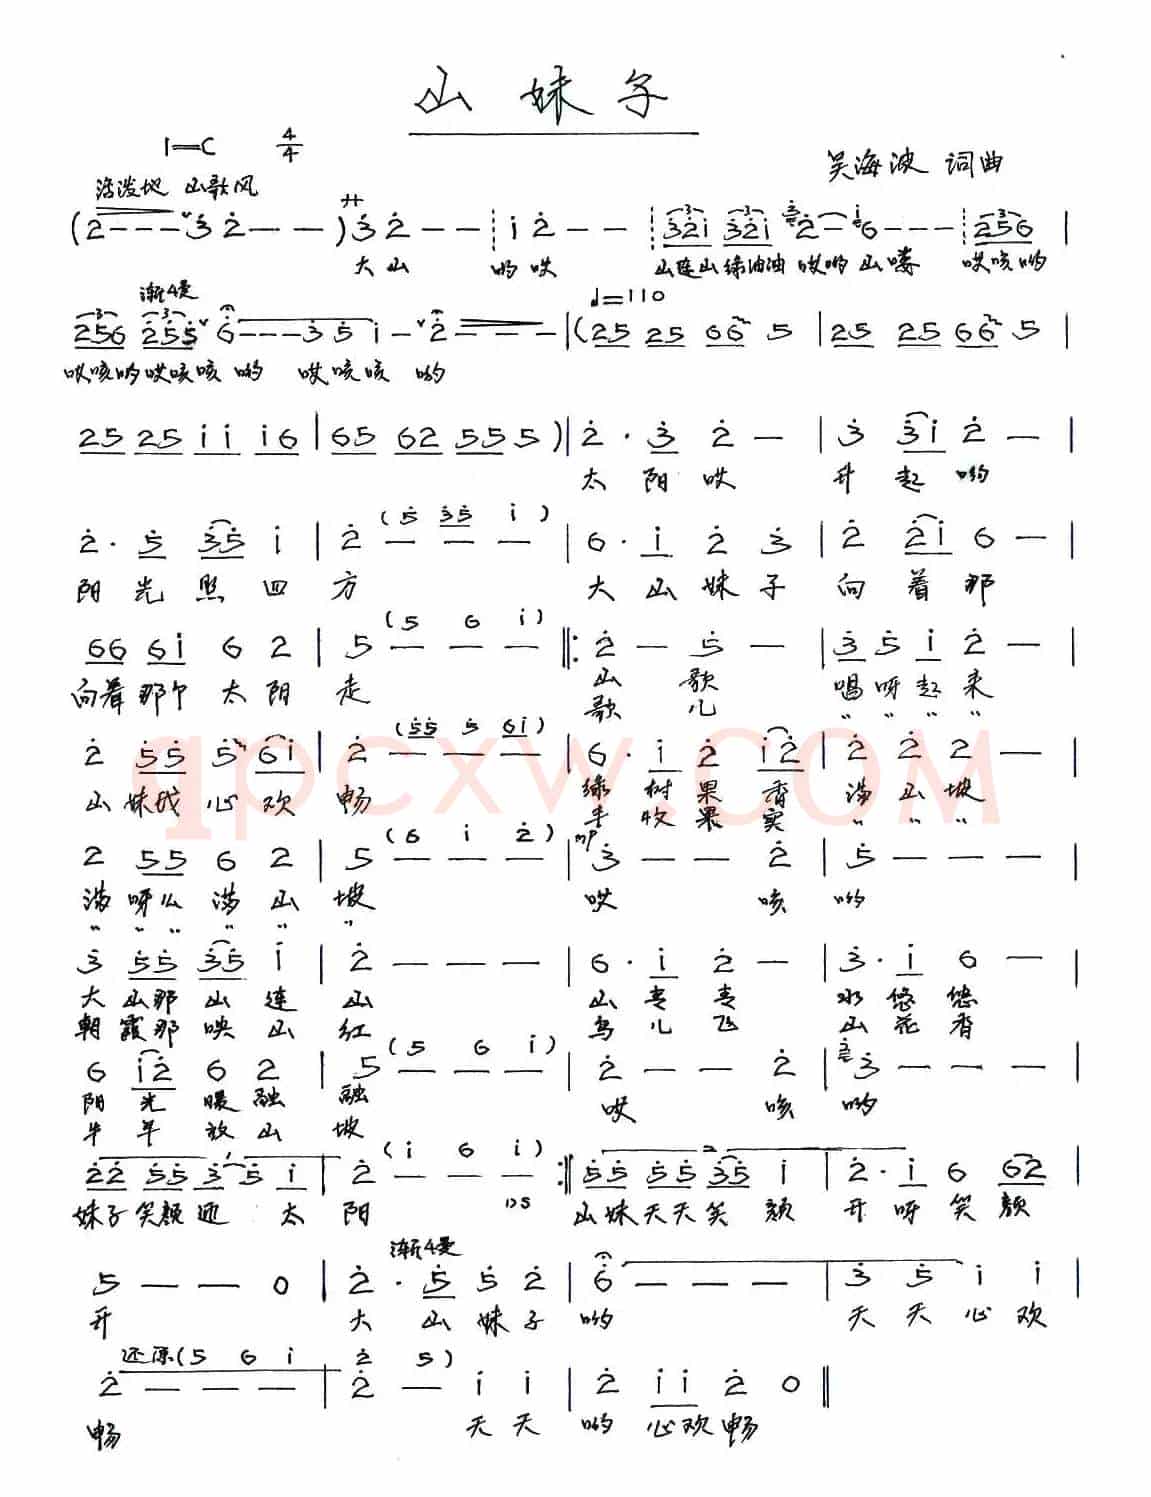 山妹子
1=C 4/4
吴海波 词曲
活泼地 山歌风
(2---3 2--)3 2-- 1 2-- 321 321 2-16--- 256
大山 哟哎 山连山绿油油哎哟山喽 哎咳哟
渐慢 ♩=110
256 255 6---3 5 1-2--- (25 25 66 5 25 25 66 5
哎咳哟哎咳咳哟 哎咳咳 哟
25 25 1 1 16 65 62 55 5) 2· 3 2- 3 31 2-
太阳哎 升起哟
2· 5 35 1 2--- (5 35 1) 6· 1 2 3 2 21 6-
阳光照四方 大山妹子向着那
66 61 6 2 5--- (5 6 1) 2-5- 3 5 1 2-
向着那个太阳走 山歌 唱呀起来
歌儿 〃〃〃〃
2 55 5 61 2--- (55 5 61) 6· 1 2 12 2 2 2-
山妹我心欢畅 绿树果香满山坡
丰收果实〃〃〃
2 55 6 2 5--- (6 1 2) mp 3--2 5---
满呀么满山坡 哎咳哟
〃〃〃〃〃〃
3 55 35 1 2--- 6· 1 2- 3· 1 6-
大山那山连山 山青青 水悠悠
朝霞那映山红 鸟儿飞 山花香
6 12 6 2 5--- (5 6 1) 2--2 3---
阳光暖融融 哎咳哟
牛羊放山坡
22 55 3 5 1 2--- (1 6 1) DS 55 55 35 1 2· 1 6 62
妹子笑颜迎太阳 山妹天天笑颜开呀笑颜
渐慢
5--0 2· 5 5 2 6--- 3 5 1 1
开 大山妹子哟 天天心欢
还原(5 6 1 2 5)
2--- 2- 1 1 2 11 2 0
畅 天天哟心欢畅
qpcxw.COM